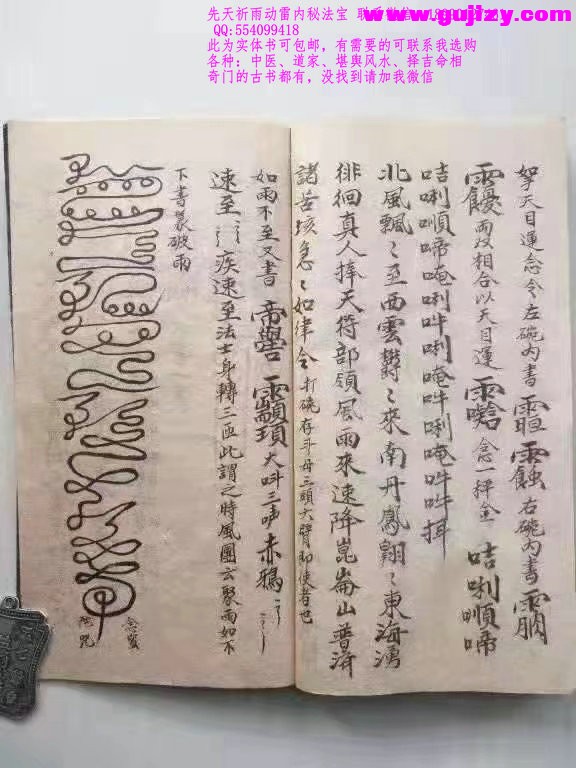 www.gujizy.com
先天祈雨动雷内秘法宝
QQ:554099418
此为实体书可包邮，有需要的可联系我选购
各种：中医、道家、堪舆风水、择吉命相
奇门的古书都有，没找到请加我微信
天目運念令左碗內書 右碗內書
而及相合以天目運 念一 咭唎㖸啼
咭唎㖸啼唵唎吽唎唵吽唎唵吽吽
北風飄〻至西雲欝〻來南丹鳳翔〻東海湧
徘徊真人捧天符部領風雨來速降崑崙山普濟
諸苦垓急〻如律令打碗存斗母三頭六臂即使者也
如雨不至又書 帝嚳 顓頊 大叫三声赤鴉
速至 疾速至法士身轉三匝此謂之時風團云聚雨如下
下書裂破雨
念蜜
陀咒